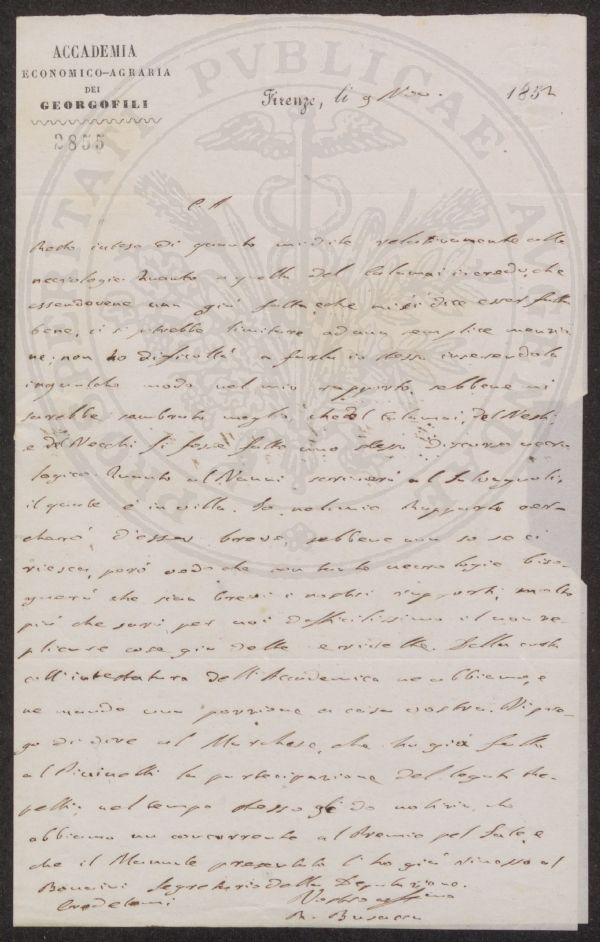 ACCADEMIA
ECONOMICO-AGRARIA
DEI
GEORGOFILI
2855
Firenze, li 9 Nov. 1852
C. A
Resto inteso di quanto mi dite relativamente alle
necrologie. Quanto a quella del Calamai credo, che
essendovene una già fatta, che mi si dice esser fatta
bene, ci si potrebbe limitare ad una semplice menzio
ne; non ho difficoltà a farla io stesso inserendola
in qualche modo nel mio rapporto, sebbene mi
sarebbe sembrato meglio che del Calamai, del Nesti
e del Vecchi si fosse fatto uno stesso discorso necro
logico. Quanto al Nanni scriverò al Salvagnoli,
il quale è in villa. Io nel mio Rapporto cer
cherò d'esser breve, sebbene non so se ci
riesca, però vedo che con tante necrologie biso
gnerà che sian brevi i nostri rapporti, molto
più che sarà per noi difficilissimo il non re
plicare cose già dette e ridette. Della carta
coll'intestatura dell'Accademia ne abbiamo, e
ne mando una porzione a casa vostra. Vi pre
go di dire al Marchese, che ho già fatta
al la partecipazione del legato
nel tempo stesso gli do notizia, che
abbiamo un concorrente al Premio pel Sale, e
che il Manuale presentato l'ho già rimesso al
Segretario della Deputazione.
Credetemi Vostro
R. Busacca
PROSPERITATI PVBLICAE AVGENDAE